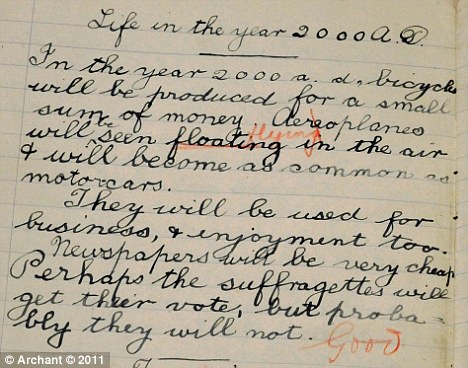 Life in the year 2000 A.D.
In the year 2000 a. d, bicycles
will be produced for a small
sum of money. Aeroplanes
will seen floating flying in the air
& will become as common as
motorcars.
They will be used for
business, & enjoyment too.
Newspapers will be very cheap
Perhaps the suffragettes will
get their vote, but proba-
bly they will not. Good
© Archant © 2011